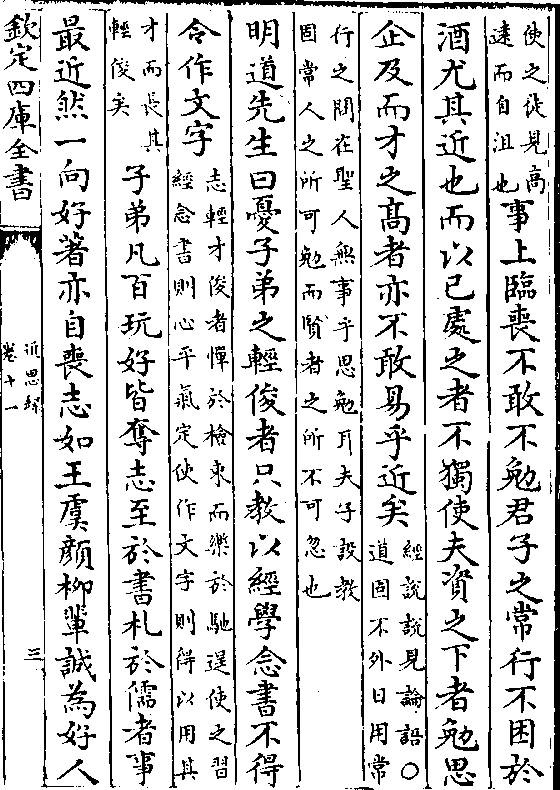 使之徒見高
遠而自沮也
事上臨喪不敢不勉君子之常行不困於
酒尤其近也而以已處之者不獨使夫資之下者勉思
企及而才之髙者亦不敢易乎近矣
經說說見論語○
道固不外日用常
行之間在聖人無事乎思勉耳夫子設教
固常人之所可勉而賢者之所不可忽也
明道先生曰憂子弟之輕俊者只教以經學念書不得
令作文字
志輕才俊者憚於檢束而樂於馳逞使之習
經念書則心平氣定使作文字則得以用其
才而長其
輕俊矣
子弟凡百玩好皆奪志至於書札於儒者事
最近然一向好著亦自喪志如王虞顔柳輩誠為好人
欽定四庫全書
近思録
卷十一
三